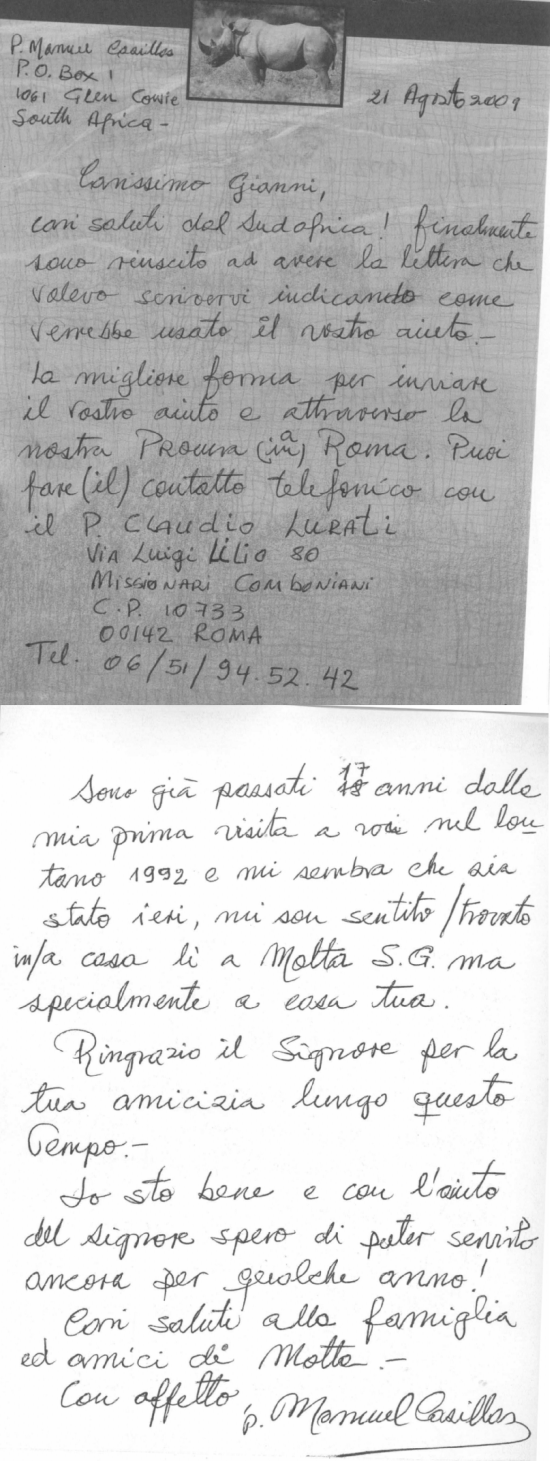 P. Manuel Casillas
P.O. Box 1
1061 Glen Cowie
South Africa -
21 Agosto 2009
Carissimo Gianni,
cari saluti dal Sudafrica! finalmente
sono riuscito ad avere la lettera che
volevo scrivervi indicando come
verrebbe usato il vostro aiuto.-
La migliore forma per inviare
il vostro aiuto e attraverso la
nostra Procura (in) a Roma. Puoi
fare (il) contatto telefonico con
il P. Claudio LURATI
Via Luigi Lilio 80
Missionari Comboniani
C.P. 10733
00142 ROMA
Tel. 06/51/94.52.42
Sono già passati 17 anni dalla
mia prima visita a voi nel lon-
tano 1992 e mi sembra che sia
stato ieri, mi son sentito/trovato
in/a casa lì a Motta S.G. ma
specialmente a casa tua.
Ringrazio il Signore per la
tua amicizia lungo questo
Tempo.-
Io sto bene e con l'aiuto
del Signore spero di poter servirlo
ancora per qualche anno!
Cari saluti alla famiglia
ed amici di Motta.-
Con affetto, p. Manuel Casillas